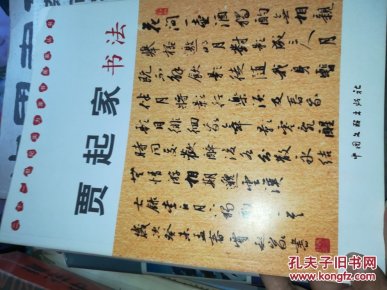 贾起家书法
花间一壶酒独酌无相亲
举杯邀明月对影成三人月
既不解饮影徒随我身暂
伴月将影行乐须及春我歌
月徘徊我舞影零乱醒
时同交欢醉后各分散永结
无情游相期邈云汉
岁次癸未
中国文联出版社
孔夫子旧书网